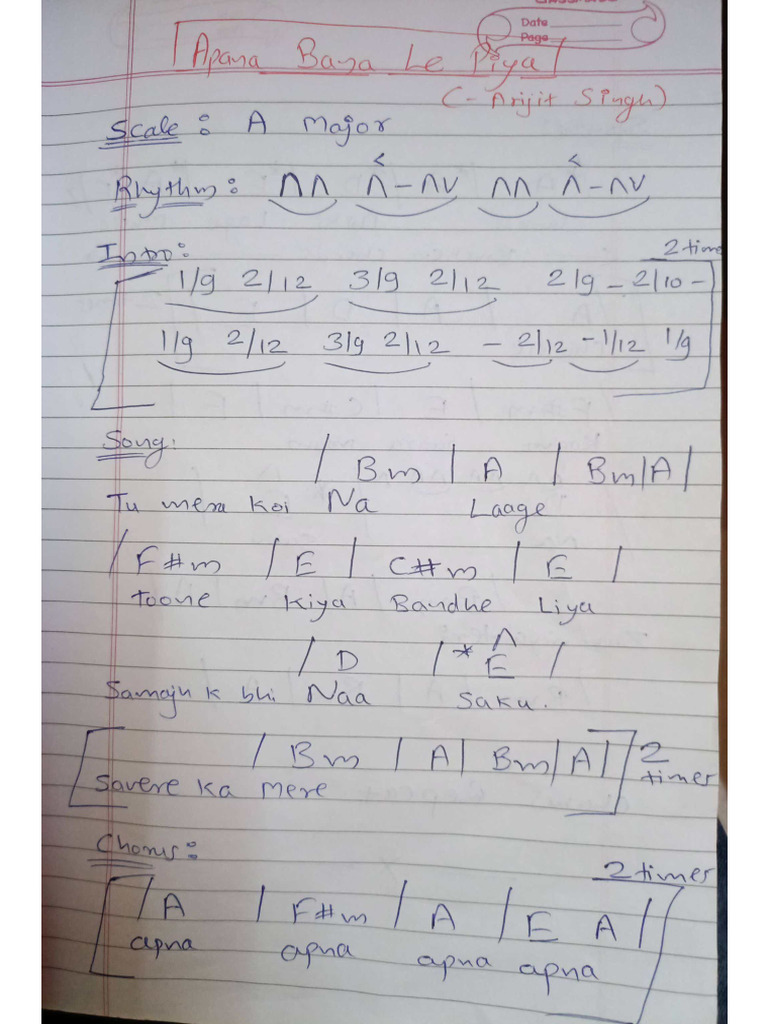 Date
Page
Apana Bana Le Piya
(- Arijit Singh)
Scale: A Major
Rhythm: ΛΛ Λ - ΛV ΛΛ Λ - ΛV
Intro: 2 time
1/9 2/12 3/9 2/12 2/9 - 2/10 -
1/9 2/12 3/9 2/12 - 2/12 - 1/12 1/9
Song:
/ Bm / A / Bm/A/
Tu mera koi Na Laage
/ F#m / E / C#m / E /
toone kiya Bandhe Liya
/ D / * E /
Samajh k bhi Naa Saku.
/ Bm / A / Bm/A/ 2 times
Savere ka mere
Chorus: 2 times
/ A / F#m / A / E A /
apna apna apna apna